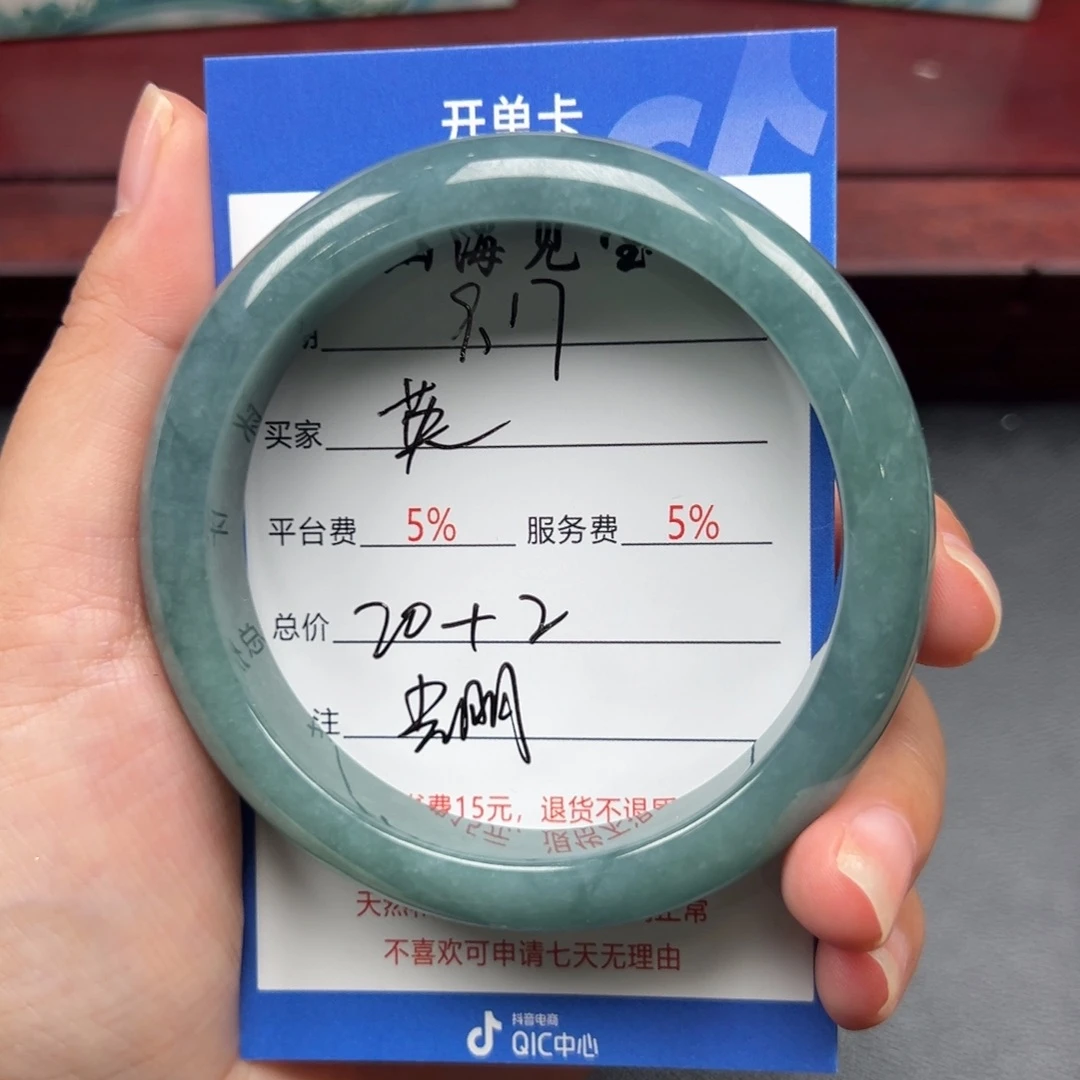 开单卡
山海见宝
8.17
买家 英
平台费 5% 服务费 5%
总价 20+2
注
费15元，退货不退
天然 正常
不喜欢可申请七天无理由
抖音电商
QIC中心